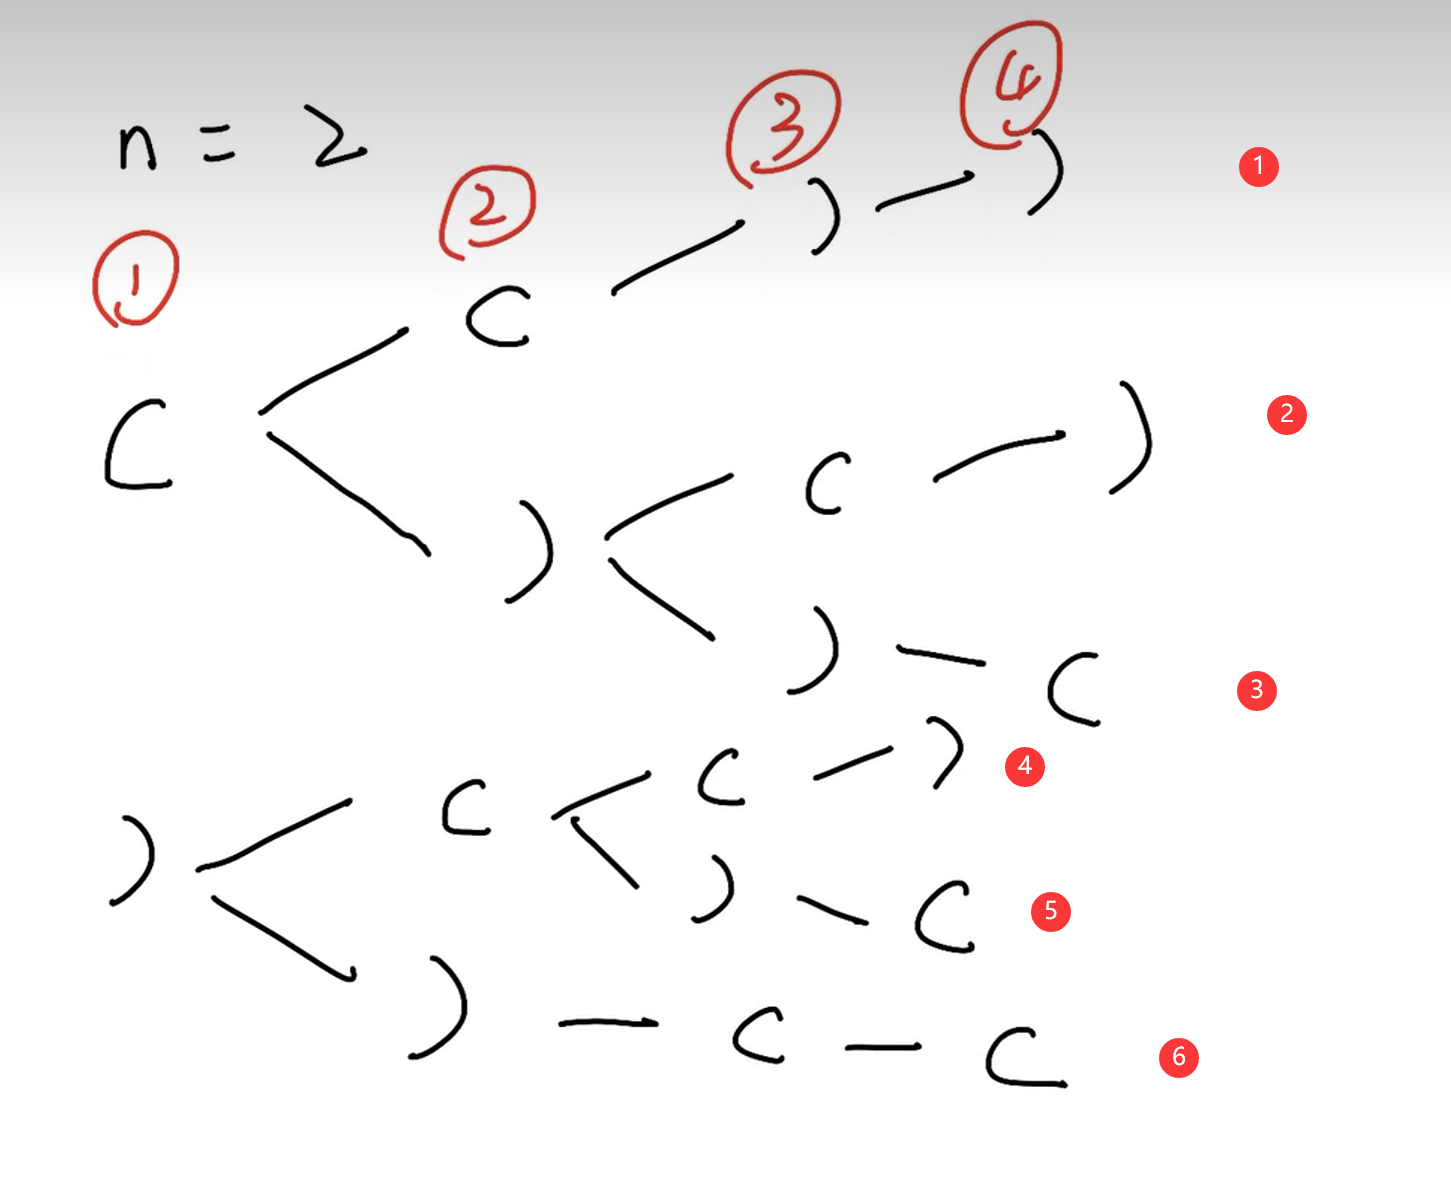 n = 2
① ② ③ ④
( ( ) ) 1
( ) ( ) 2
) ( 3
) ( ( ) 4
) ( 5
) ( ( 6